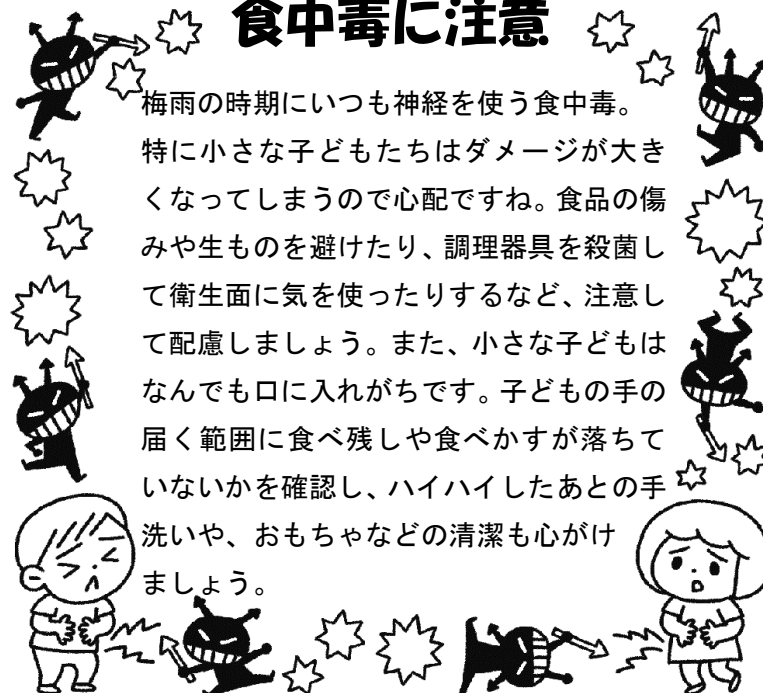 食中毒に注意
梅雨の時期にいつも神経を使う食中毒。
特に小さな子どもたちはダメージが大き
くなってしまうので心配ですね。食品の傷
みや生ものを避けたり、調理器具を殺菌し
て衛生面に気を使ったりするなど、注意し
て配慮しましょう。また、小さな子どもは
なんでも口に入れがちです。子どもの手の
届く範囲に食べ残しや食べかすが落ちて
いないかを確認し、ハイハイしたあとの手
洗いや、おもちゃなどの清潔も心がけ
ましょう。